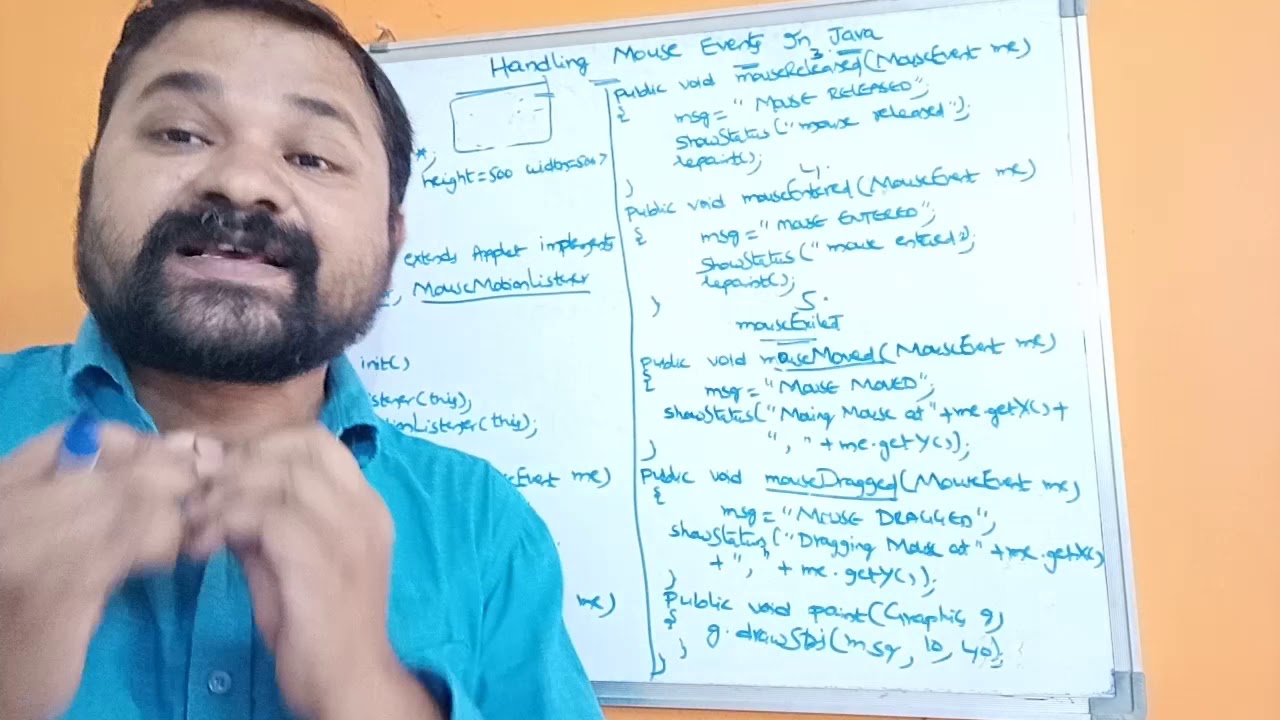 Handling Mouse Events In Java
*;
height=500 width=500>
extends Applet implements
, MouseMotionListener
init()
istener(this);
ionListener(this);
Event me)
me)
3.
public void mouseReleased(MouseEvent me)
{
msg=" MOUSE RELEASED";
showStatus("mouse released");
repaint();
}
4.
public void mouseEntered(MouseEvent me)
{
msg="MOUSE ENTERED";
showStatus("mouse entered");
repaint();
}
5.
mouseExited
public void mouseMoved(MouseEvent me)
{
msg="MOUSE MOVED";
showStatus(" Mouse at"+me.getX()+
","+me.getY());
}
public void mouseDragged(MouseEvent me)
{
msg="MOUSE DRAGGED";
showStatus("Dragging Mouse at"+me.getX()
+","+me.getY());
}
public void paint(Graphics g)
{
g.drawString(msg, 10, 40);
}
}